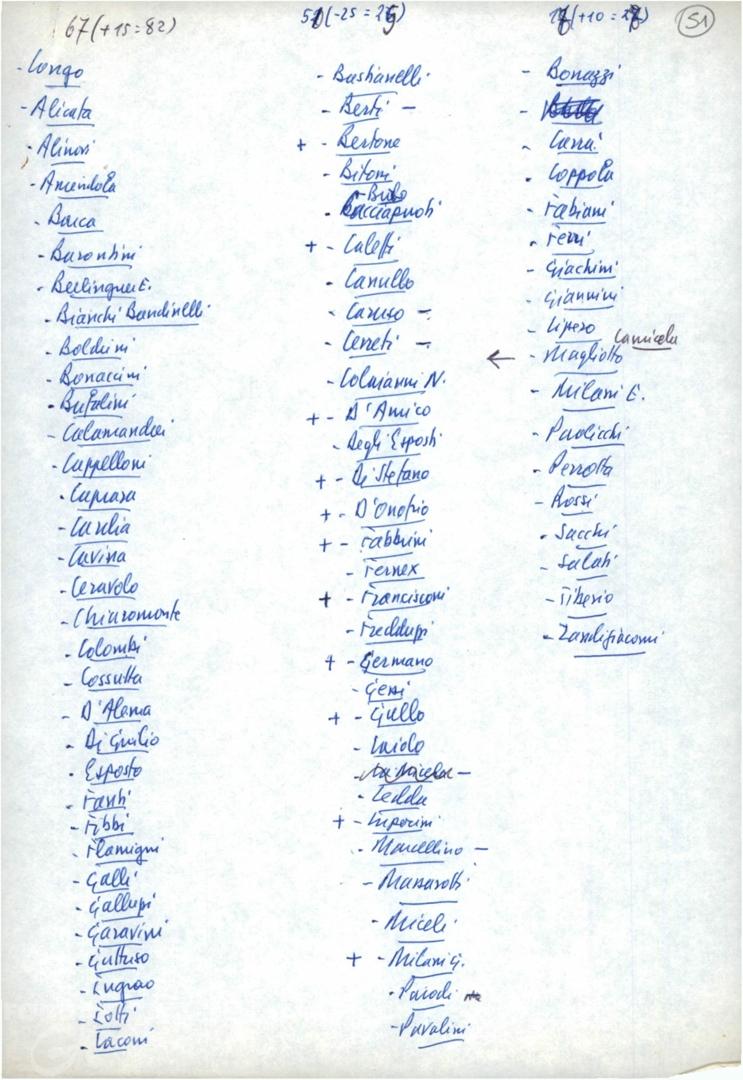 67 (+15=82)
- Longo
- Alicata
- Alinovi
- Amendola
- Barca
- Barontini
- Berlinguer E.
- Bianchi Bandinelli
- Boldrini
- Bonaccini
- Bufalini
- Calamandrei
- Cappelloni
- Caprara
- Carlia
- Cavina
- Ceravolo
- Chiaromonte
- Colombi
- Cossutta
- D'Alema
- Di Giulio
- Esposto
- Fanti
- Fibbi
- Flamigni
- Galli
- Gallupi
- Garavini
- Guttuso
- Ingrao
- Iotti
- Laconi
(-25=25)
- Bastianelli
- Berti -
+ - Bertone
- Bitoni
- Brilo
- Bacciapnoti
+ - Caleffi
- Canullo
- Caruso -
- Cerreti -
- Colaianni N.
+ - D'Amico
- Degli Esposti
+ - Di Stefano
+ - D'Onofrio
+ - Fabbrini
- Fernex
+ - Francisconi
- Freddupi
+ - Germano
- Gessi
+ - Gullo
- Laiolo
- Ledda
+ - Luporini
- Marcellino -
- Marzarotti
- Miceli
+ - Milani G.
- Parodi
- Pavolini
(+10=
51
- Bonazzi
- Carrà
- Coppola
- Fabiani
- Ferri
- Giachini
- Giannini
- Lipero
Lamicela
← - Magliotto
- Milani E.
- Paolicchi
- Perrotta
- Rossi
- Sacchi
- Salati
- Tiberio
- Zandigiacomi